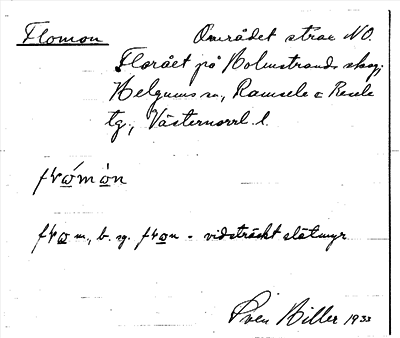 Flomon Området strax NO.
Florået på Holmstrands skog,
Helgums sn, Ramsele o Resele
tg, Västernorrl. l.
flωmωn
flω m, b. sg. flωn - vidsträckt slåtmyr
Sven Hiller 1933